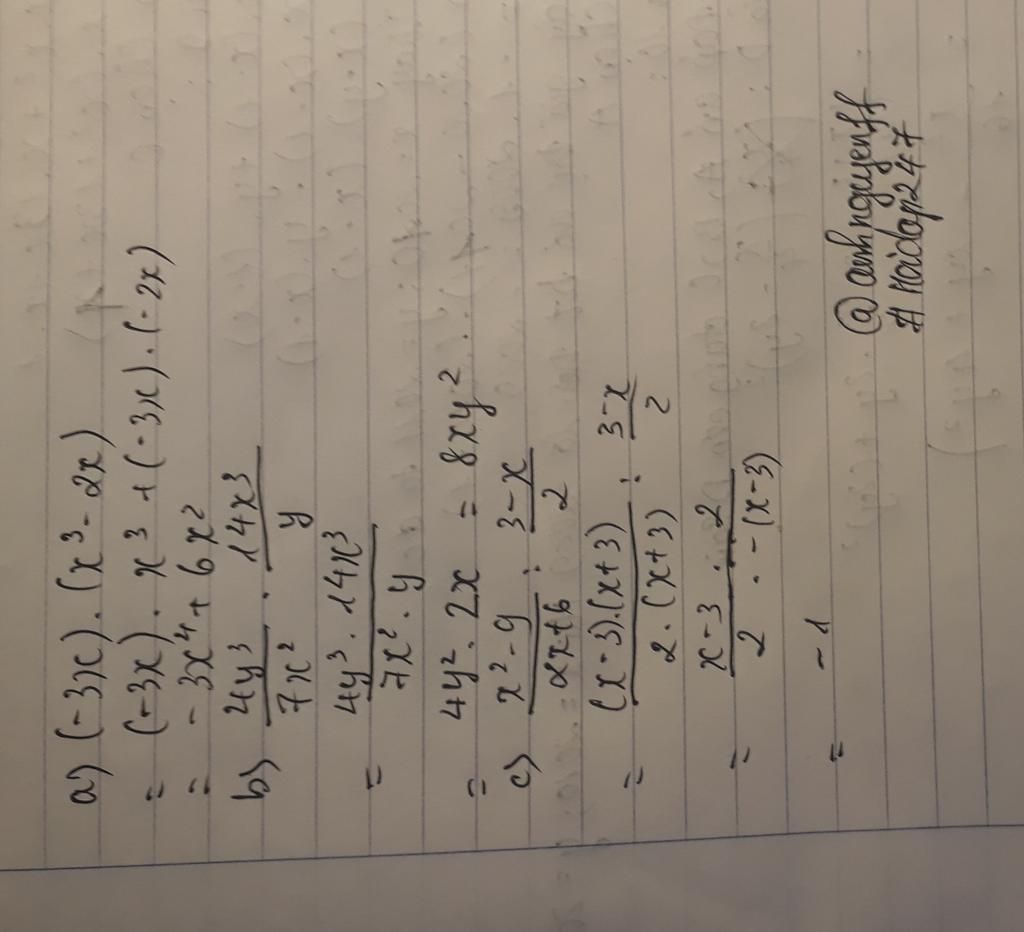 a) (-3x).(x³-2x)
= (-3x).x³+(-3x).(-2x)
= -3x⁴+6x²
b) 4y³/7x² . 14x³/y
= 4y³.14x³/7x².y
= 4y².2x = 8xy².
c) x²-9/2x+6 : 3-x/2
= (x-3).(x+3)/2.(x+3) : 3-x/2
= x-3/2 . 2/-(x-3)
= -1
@anhnguyenff
# Hoidap247